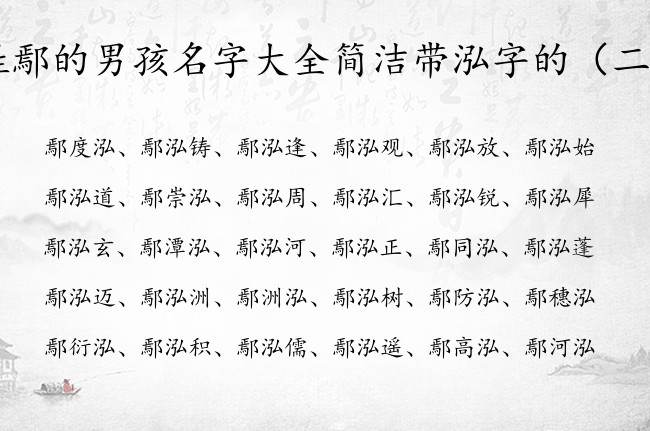 鄢的男孩名字大全简洁带泓字的（二
鄢度泓、鄢泓铸、鄢泓逢、鄢泓观、鄢泓放、鄢泓始
鄢泓道、鄢崇泓、鄢泓周、鄢泓汇、鄢泓锐、鄢泓犀
鄢泓玄、鄢潭泓、鄢泓河、鄢泓正、鄢同泓、鄢泓蓬
鄢泓迈、鄢泓洲、鄢洲泓、鄢泓树、鄢防泓、鄢穗泓
鄢衍泓、鄢泓积、鄢泓儒、鄢泓遥、鄢高泓、鄢河泓